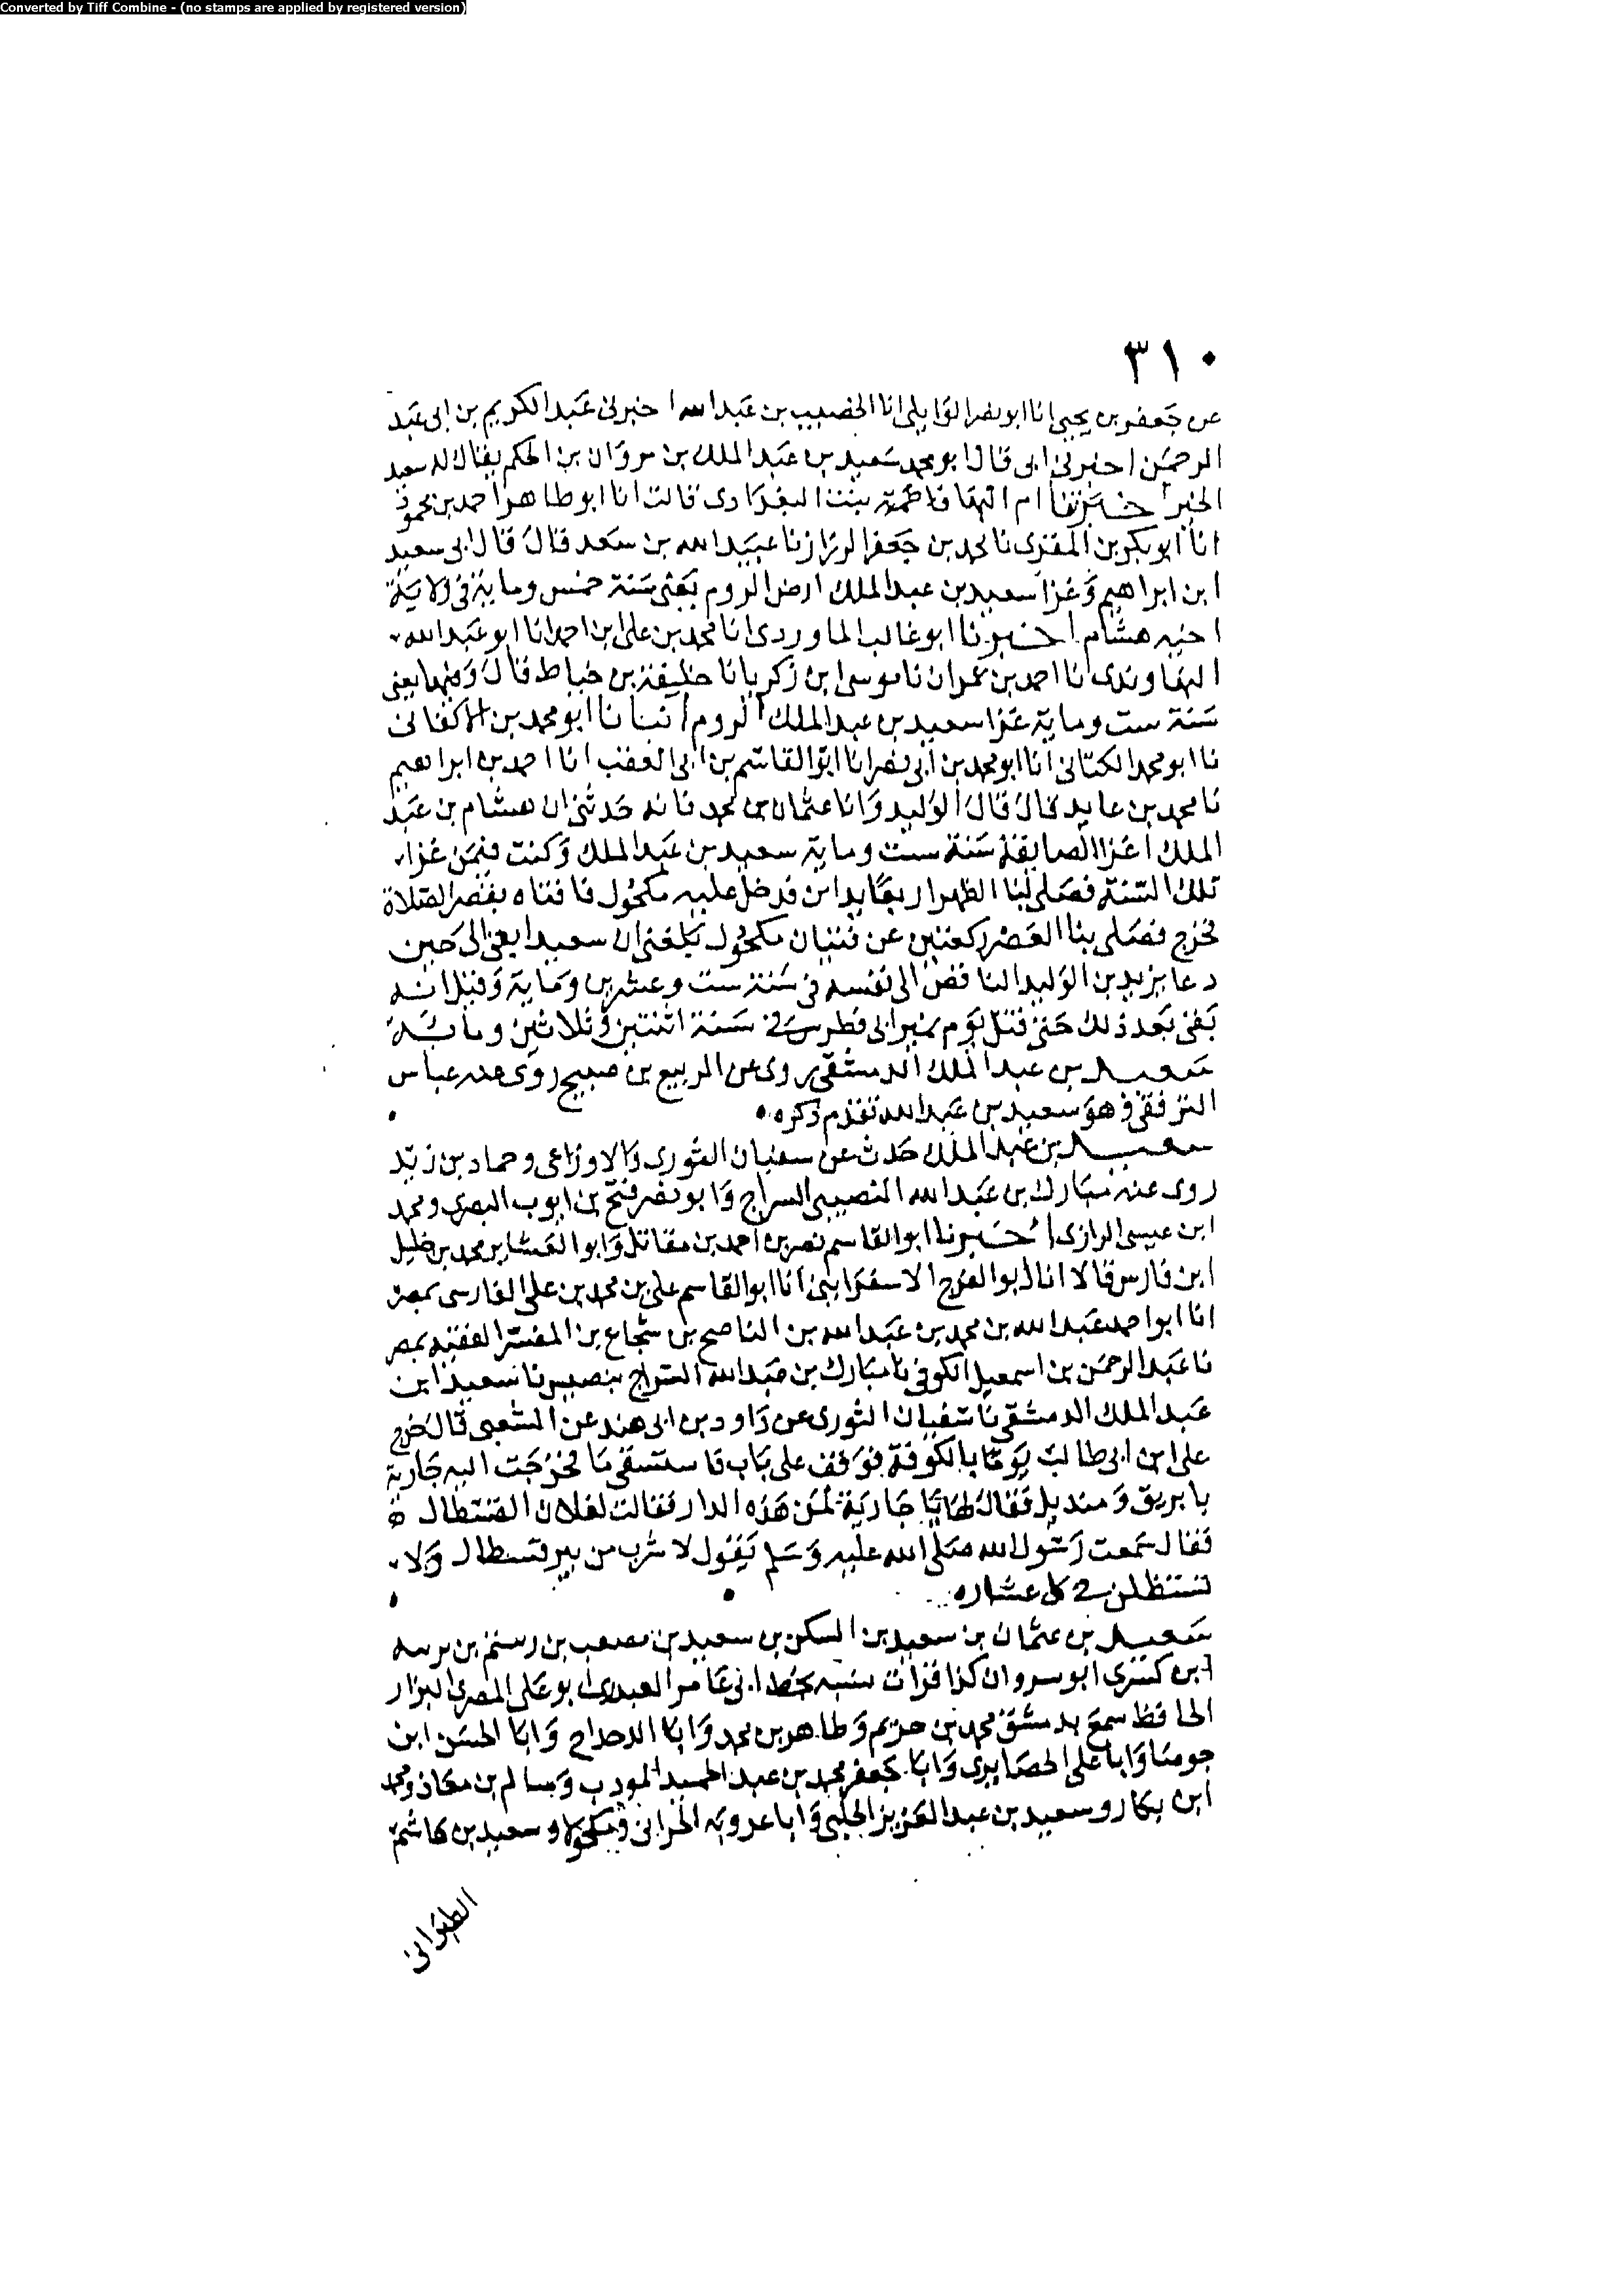 Converted by Tiff Combine - (no stamps are applied by registered version)
٣١٠
عن جعفر بن يحيى انا ابو نصر الوايلي انا الخصيب بن عبد الله اخبرني عبد الكريم بن ابي عبد
الرحمن اخبرني ابي قال ابو محمد سعيد بن عبد الملك بن مروان بن الحكم يقال له سعيد
الخير اخبرتنا ام البها فاطمة بنت البغدادي قالت انا ابو طاهر احمد بن محمود
انا ابو بكر بن المقري نا محمد بن جعفر الزراز نا عبيد الله بن سعد قال قال ابي سعيد
ابن ابراهيم وغزا سعيد بن عبد الملك ارض الروم يعني سنة خمس وماية في ولاية
اخيه هشام اخبرنا ابو غالب الماوردي انا محمد بن علي ابن احمد انا ابو عبد الله
النهاوندي نا احمد بن عمران نا موسى ابن زكريا نا خليفة بن خياط قال وفيها يعني
سنة ست وماية غزا سعيد بن عبد الملك الروم انبانا ابو محمد بن الاكفاني
نا ابو محمد الكتاني انا ابو محمد بن ابي نصر انا ابو القاسم بن ابي العقب انا احمد بن ابراهيم
نا محمد بن عايد قال قال الوليد وانا عثمان بن محمد انه حدثني ان هشام بن عبد
الملك اغزا الصايفة سنة ست وماية سعيد بن عبد الملك وكنت فيمن غزا
تلك السنة فصلى بنا الظهر اربعا بدابق فدخل عليه مكحول فافتاه بقصر الصلاة
فخرج فصلى بنا العصر ركعتين عن فتيان مكحول بلغني ان سعيدا بقي الى حين
دعا يزيد بن الوليد الناقص الى نفسه في سنة ست وعشرين وماية وقيل انه
بقي بعد ذلك حتى قتل يوم نهر ابي فطرس في سنة اثنتين وثلاثين ومائة
سعيد بن عبد الملك الدمشقي روى عن الربيع بن صبيح روى عنه عباس
الترقفي وهو سعيد بن عبد الله تقدم ذكره
سعيد بن عبد الملك حدث عن سفيان الثوري والاوزاعي وحماد بن زيد
روى عنه مبارك بن عبد الله النصيبي السراج وابو نصر فتح بن ايوب البصري ومحمد
ابن عيسى الرازي اخبرنا ابو القاسم نصر بن احمد بن مقاتل وابو العشاير محمد بن خليل
ابن فارس قالا انا ابو الفرج الاسفرايني انا ابو القاسم علي بن محمد بن علي الفارسي بمصر
انا ابو احمد عبد الله بن محمد بن عبد الله بن الناصح بن شجاع بن المفسر الفقيه بمصر
نا عبد الرحمن بن اسمعيل الكوفي نا مبارك بن عبد الله السراج بنصيبين نا سعيد ابن
عبد الملك الدمشقي نا سفيان الثوري عن داود بن ابي هند عن الشعبي قال خرج
علي ابن ابي طالب يوما بالكوفة فوقف على باب فاستسقى ما فخرجت اليه جارية
بابريق ومنديل فقال لها يا جارية لمن هذه الدار فقالت لفلان القسطال
فقال سمعت رسول الله صلى الله عليه وسلم يقول لا تشرب من بير قسطال ولا
تستظلن في ظل عشار
سعيد بن عثمان بن سعيد بن السكن بن سعيد بن مصعب بن رستم بن برسه
ابن كسرى ابو سروان كذا قرات نسبه بخط ابي عامر العبدري ابو علي المصري البزار
الحافظ سمع بدمشق محمد بن خريم وطاهر بن محمد وابا الدحداح وابا الحسن ابن
جوصا وابا علي الحصايري وابا جعفر محمد بن عبد الحميد المودب وسالم بن معاذ ومحمد
ابن بكار وسعيد بن عبد العزيز الحلبي وابا عروبه الحراني ومكحولا وسعيد بن هاشم
الطبراني